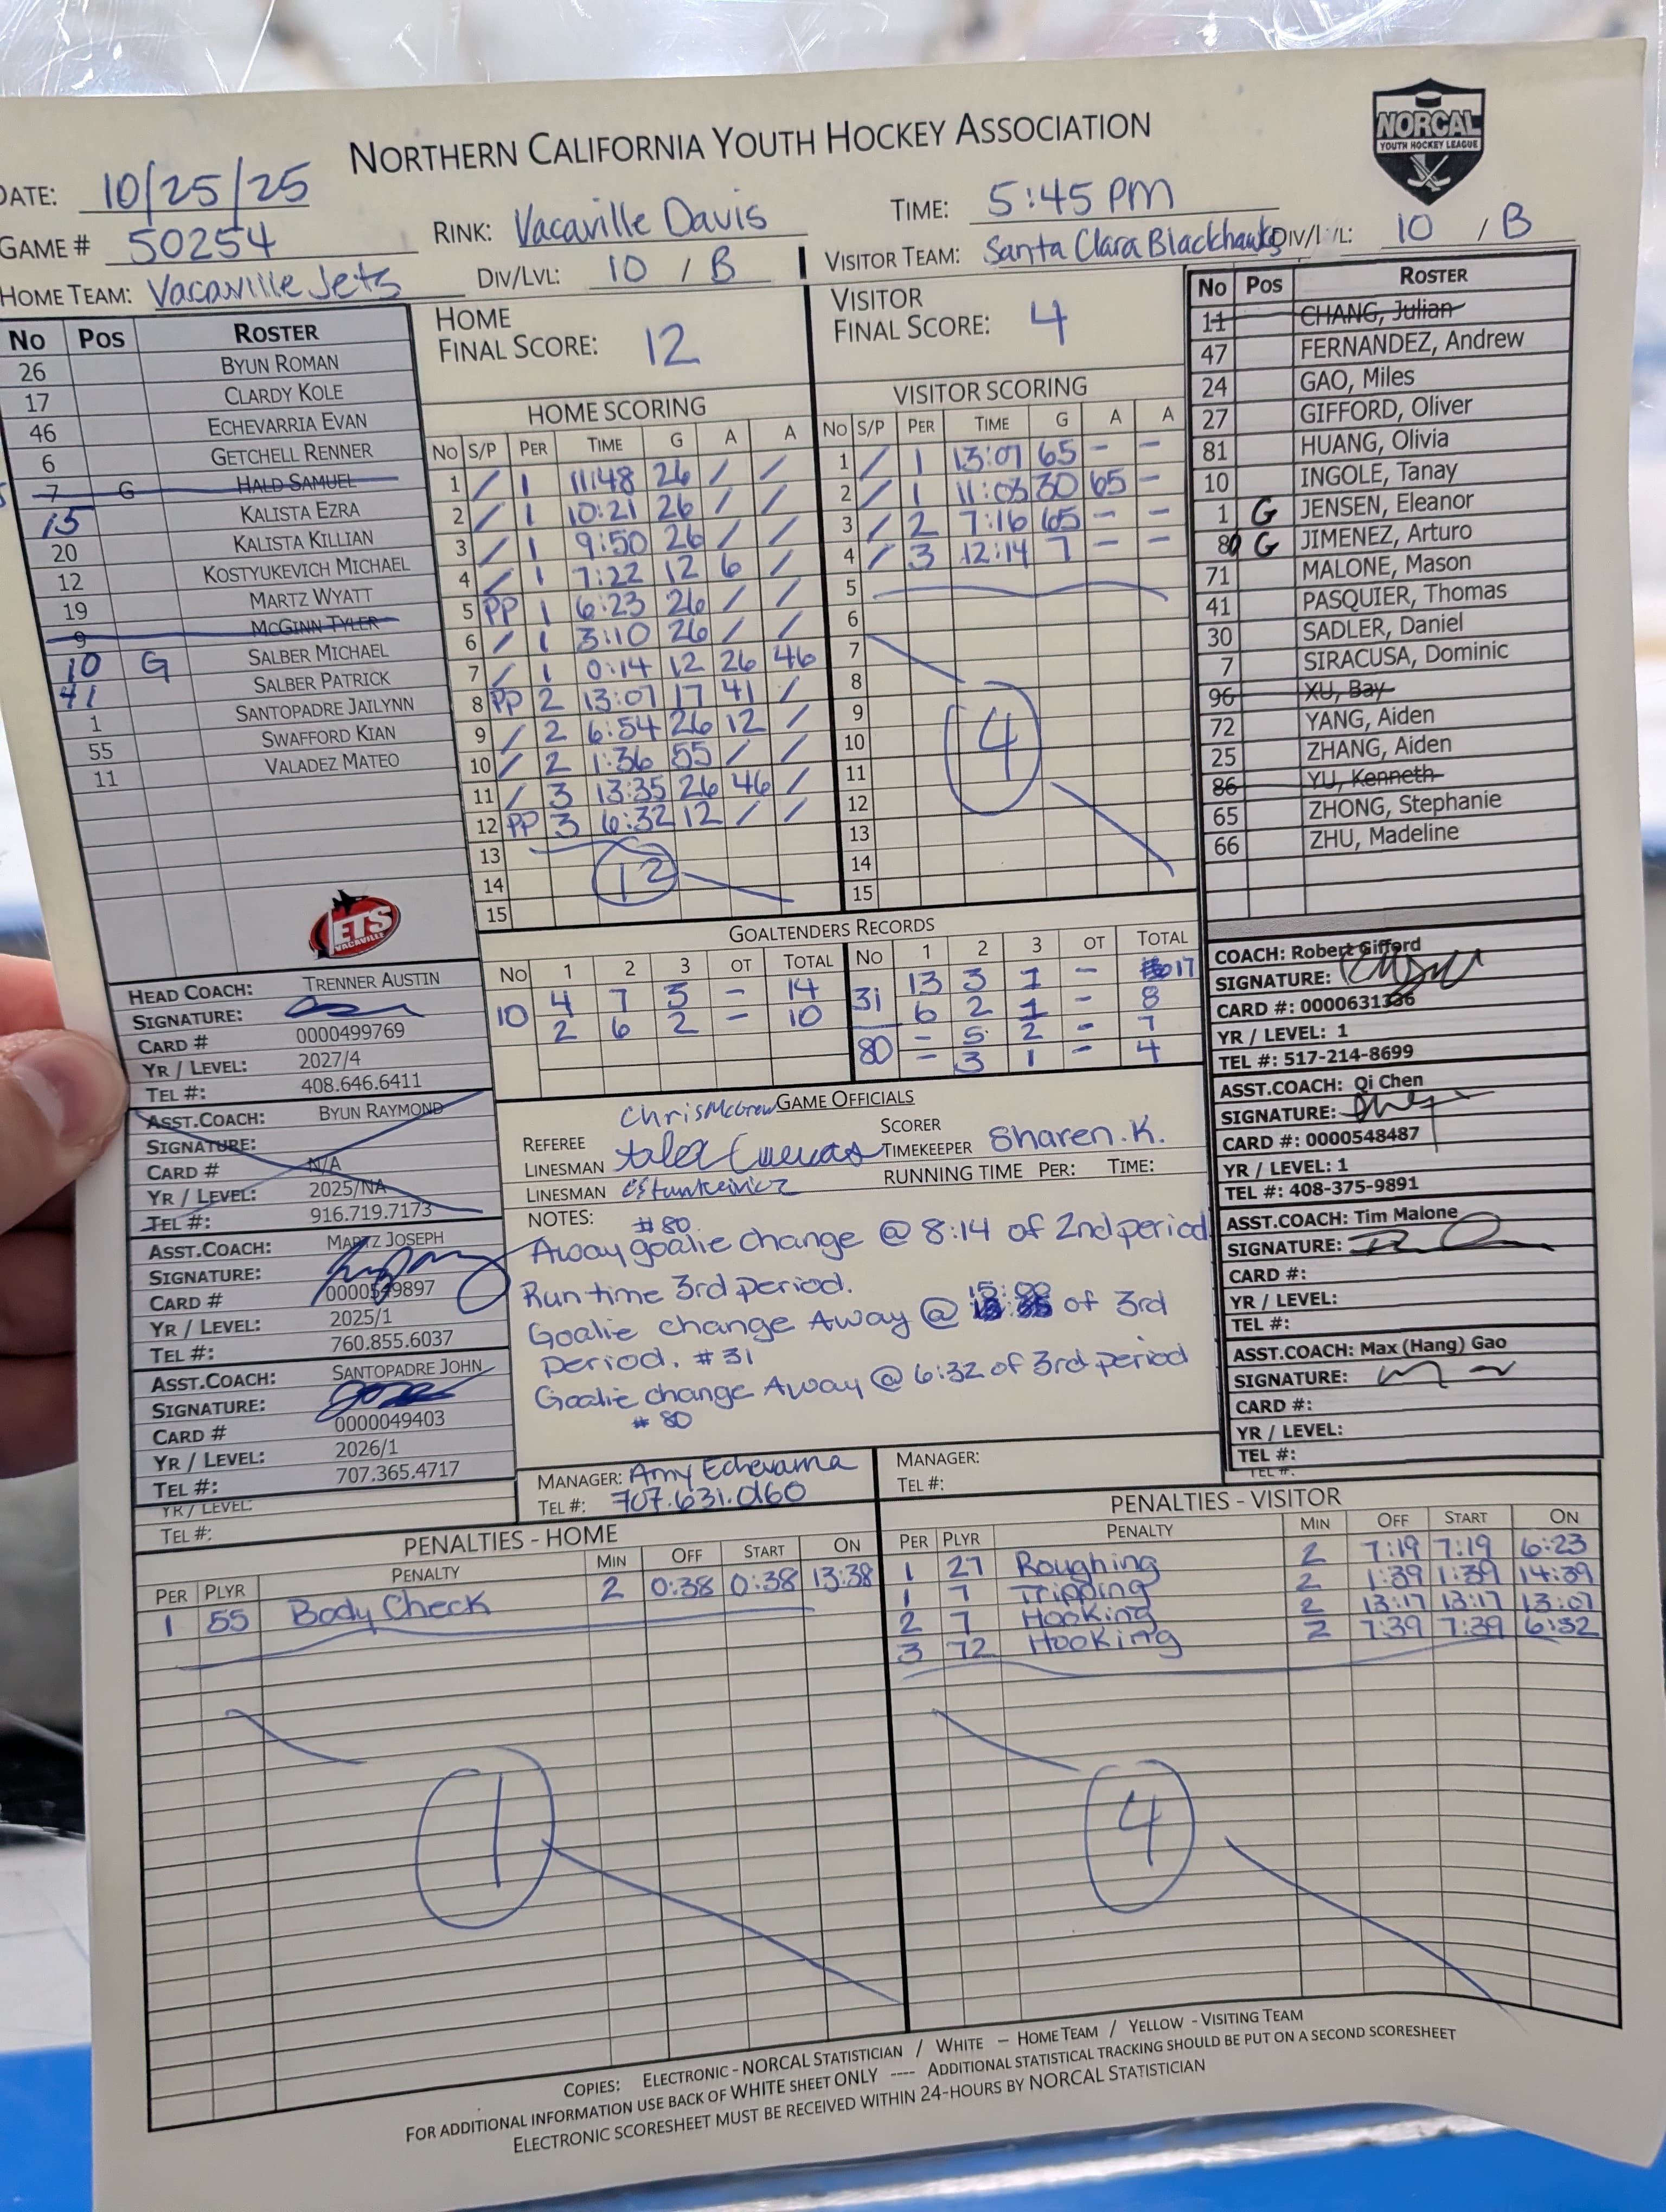 NORTHERN CALIFORNIA YOUTH HOCKEY ASSOCIATION
NORCAL
YOUTH HOCKEY LEAGUE
DATE: 10/25/25
GAME # 50254
RINK: Vacaville Davis
TIME: 5:45 PM
HOME TEAM: Vacaville Jets
DIV/LVL: 10 / B
VISITOR TEAM: Santa Clara Blackhawks DIV/LVL: 10 / B
No Pos ROSTER
26 BYUN ROMAN
17 CLARDY KOLE
46 ECHEVARRIA EVAN
6 GETCHELL RENNER
7 G HALD SAMUEL
15 KALISTA EZRA
20 KALISTA KILLIAN
12 KOSTYUKEVICH MICHAEL
19 MARTZ WYATT
9 MCGINN TYLER
10 G SALBER MICHAEL
41 SALBER PATRICK
1 SANTOPADRE JAILYNN
55 SWAFFORD KIAN
11 VALADEZ MATEO
JETS
VACAVILLE
HOME
FINAL SCORE: 12
HOME SCORING
No S/P PER TIME G A A
1 / 1 11:48 26 / /
2 / 1 10:21 26 / /
3 / 1 9:50 26 / /
4 / 1 7:22 12 6 /
5 PP 1 6:23 26 / /
6 / 1 3:10 26 / /
7 / 1 0:14 12 26 46
8 PP 2 13:07 17 41 /
9 / 2 6:54 26 12 /
10 / 2 1:36 55 / /
11 / 3 13:35 26 46 /
12 PP 3 6:32 12 / /
13
14 12
15
VISITOR
FINAL SCORE: 4
VISITOR SCORING
No S/P PER TIME G A A
1 / 1 13:07 65 - -
2 / 1 11:03 30 65 -
3 / 2 7:16 65 - -
4 / 3 12:14 7 - -
5
6
7
8
9 4
10
11
12
13
14
15
No Pos ROSTER
11 CHANG, Julian
47 FERNANDEZ, Andrew
24 GAO, Miles
27 GIFFORD, Oliver
81 HUANG, Olivia
10 INGOLE, Tanay
1 G JENSEN, Eleanor
80 G JIMENEZ, Arturo
71 MALONE, Mason
41 PASQUIER, Thomas
30 SADLER, Daniel
7 SIRACUSA, Dominic
96 XU, Bay
72 YANG, Aiden
25 ZHANG, Aiden
86 YU, Kenneth
65 ZHONG, Stephanie
66 ZHU, Madeline
GOALTENDERS RECORDS
No 1 2 3 OT TOTAL
10 4 7 3 - 14
2 6 2 - 10
No 1 2 3 OT TOTAL
31 13 3 1 - 17
6 2 1 - 8
80 - 5 2 - 7
- 3 1 - 4
HEAD COACH: TRENNER AUSTIN
SIGNATURE:
CARD # 0000499769
YR / LEVEL: 2027/4
TEL #: 408.646.6411
ASST.COACH: BYUN RAYMOND
SIGNATURE:
CARD # N/A
YR / LEVEL: 2025/NA
TEL #: 916.719.7173
ASST.COACH: MARTZ JOSEPH
SIGNATURE:
CARD # 0000549897
YR / LEVEL: 2025/1
TEL #: 760.855.6037
ASST.COACH: SANTOPADRE JOHN
SIGNATURE:
CARD # 0000049403
YR / LEVEL: 2026/1
TEL #: 707.365.4717
YR / LEVEL:
TEL #:
GAME OFFICIALS
REFEREE Chris McGrew
LINESMAN Alex Cuevas
LINESMAN
SCORER
TIMEKEEPER Sharen.K.
RUNNING TIME PER: TIME:
NOTES: #80
Away goalie change @ 8:14 of 2nd period
Run time 3rd period.
Goalie change Away @ 15:00 of 3rd
period. #31
Goalie change Away @ 6:32 of 3rd period
#80
MANAGER: Amy Echevarria
TEL #: 707.631.0160
MANAGER:
TEL #:
COACH: Robert Gifford
SIGNATURE:
CARD #: 0000631336
YR / LEVEL: 1
TEL #: 517-214-8699
ASST.COACH: Qi Chen
SIGNATURE:
CARD #: 0000548487
YR / LEVEL: 1
TEL #: 408-375-9891
ASST.COACH: Tim Malone
SIGNATURE:
CARD #:
YR / LEVEL:
TEL #:
ASST.COACH: Max (Hang) Gao
SIGNATURE:
CARD #:
YR / LEVEL:
TEL #:
TEL #:
PENALTIES - HOME
PER PLYR PENALTY MIN OFF START ON
1 55 Body Check 2 0:38 0:38 13:38
1
PENALTIES - VISITOR
PER PLYR PENALTY MIN OFF START ON
1 27 Roughing 2 7:19 7:19 6:23
1 7 Tripping 2 1:39 1:39 14:39
2 7 Hooking 2 13:17 13:17 13:07
3 72 Hooking 2 7:39 7:39 6:32
4
COPIES: ELECTRONIC - NORCAL STATISTICIAN / WHITE – HOME TEAM / YELLOW - VISITING TEAM
FOR ADDITIONAL INFORMATION USE BACK OF WHITE SHEET ONLY ---- ADDITIONAL STATISTICAL TRACKING SHOULD BE PUT ON A SECOND SCORESHEET
ELECTRONIC SCORESHEET MUST BE RECEIVED WITHIN 24-HOURS BY NORCAL STATISTICIAN